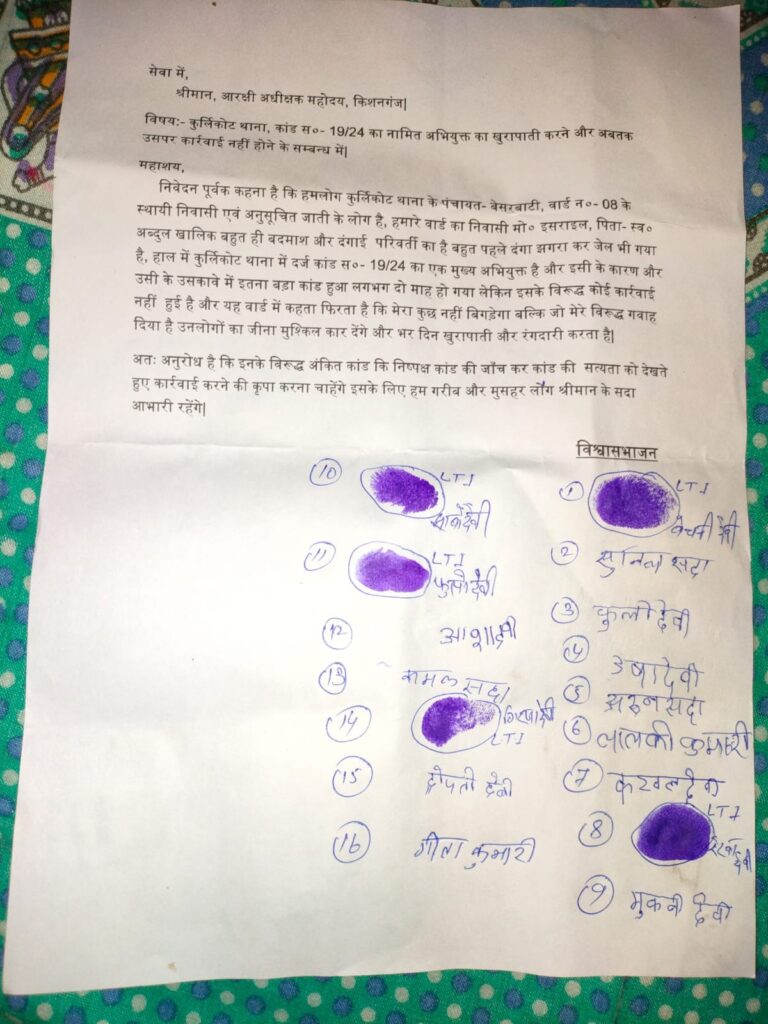 सेवा में,
श्रीमान, आरक्षी अधीक्षक महोदय, किशनगंज|
विषय:- कुर्लिकोट थाना, कांड स०- 19/24 का नामित अभियुक्त का खुरापाती करने और अबतक
उसपर कार्रवाई नहीं होने के सम्बन्ध में|
महाशय,
निवेदन पूर्वक कहना है कि हमलोग कुर्लिकोट थाना के पंचायत- बेसरबाटी, वार्ड न०- 08 के
स्थायी निवासी एवं अनुसूचित जाती के लोग है, हमारे वार्ड का निवासी मो० इसराइल, पिता- स्व०
अब्दुल खालिक बहुत ही बदमाश और दंगाई परिवर्ती का है बहुत पहले दंगा झगरा कर जेल भी गया
है, हाल में कुर्लिकोट थाना में दर्ज कांड स०- 19/24 का एक मुख्य अभियुक्त है और इसी के कारण और
उसी के उसकावे में इतना बड़ा कांड हुआ लगभग दो माह हो गया लेकिन इसके विरूद्ध कोई कार्रवाई
नहीं हुई है और यह वार्ड में कहता फिरता है कि मेरा कुछ नहीं बिगड़ेगा बल्कि जो मेरे विरूद्ध गवाह
दिया है उनलोगों का जीना मुश्किल कार देंगे और भर दिन खुरापाती और रंगदारी करता है|
अत: अनुरोध है कि इनके विरूद्ध अंकित कांड कि निष्पक्ष कांड की जाँच कर कांड की सत्यता को देखते
हुए कार्रवाई करने की कृपा करना चाहेंगे इसके लिए हम गरीब और मुसहर लोग श्रीमान के सदा
आभारी रहेंगे|
विश्वासभाजन
1 LTI
देवी
2 सुनिल सदा
3 फुलो देवी
4 उषा देवी
5 अरुन सदा
6 लालकी कुमारी
7
8 LTI
देवी
9 मुकनी देवी
10 LTI
देवी
11 LTI
देवी
12 आशा
13 कमल सदा
14
LTI
15 द्रोपती देवी
16 गीता कुमारी